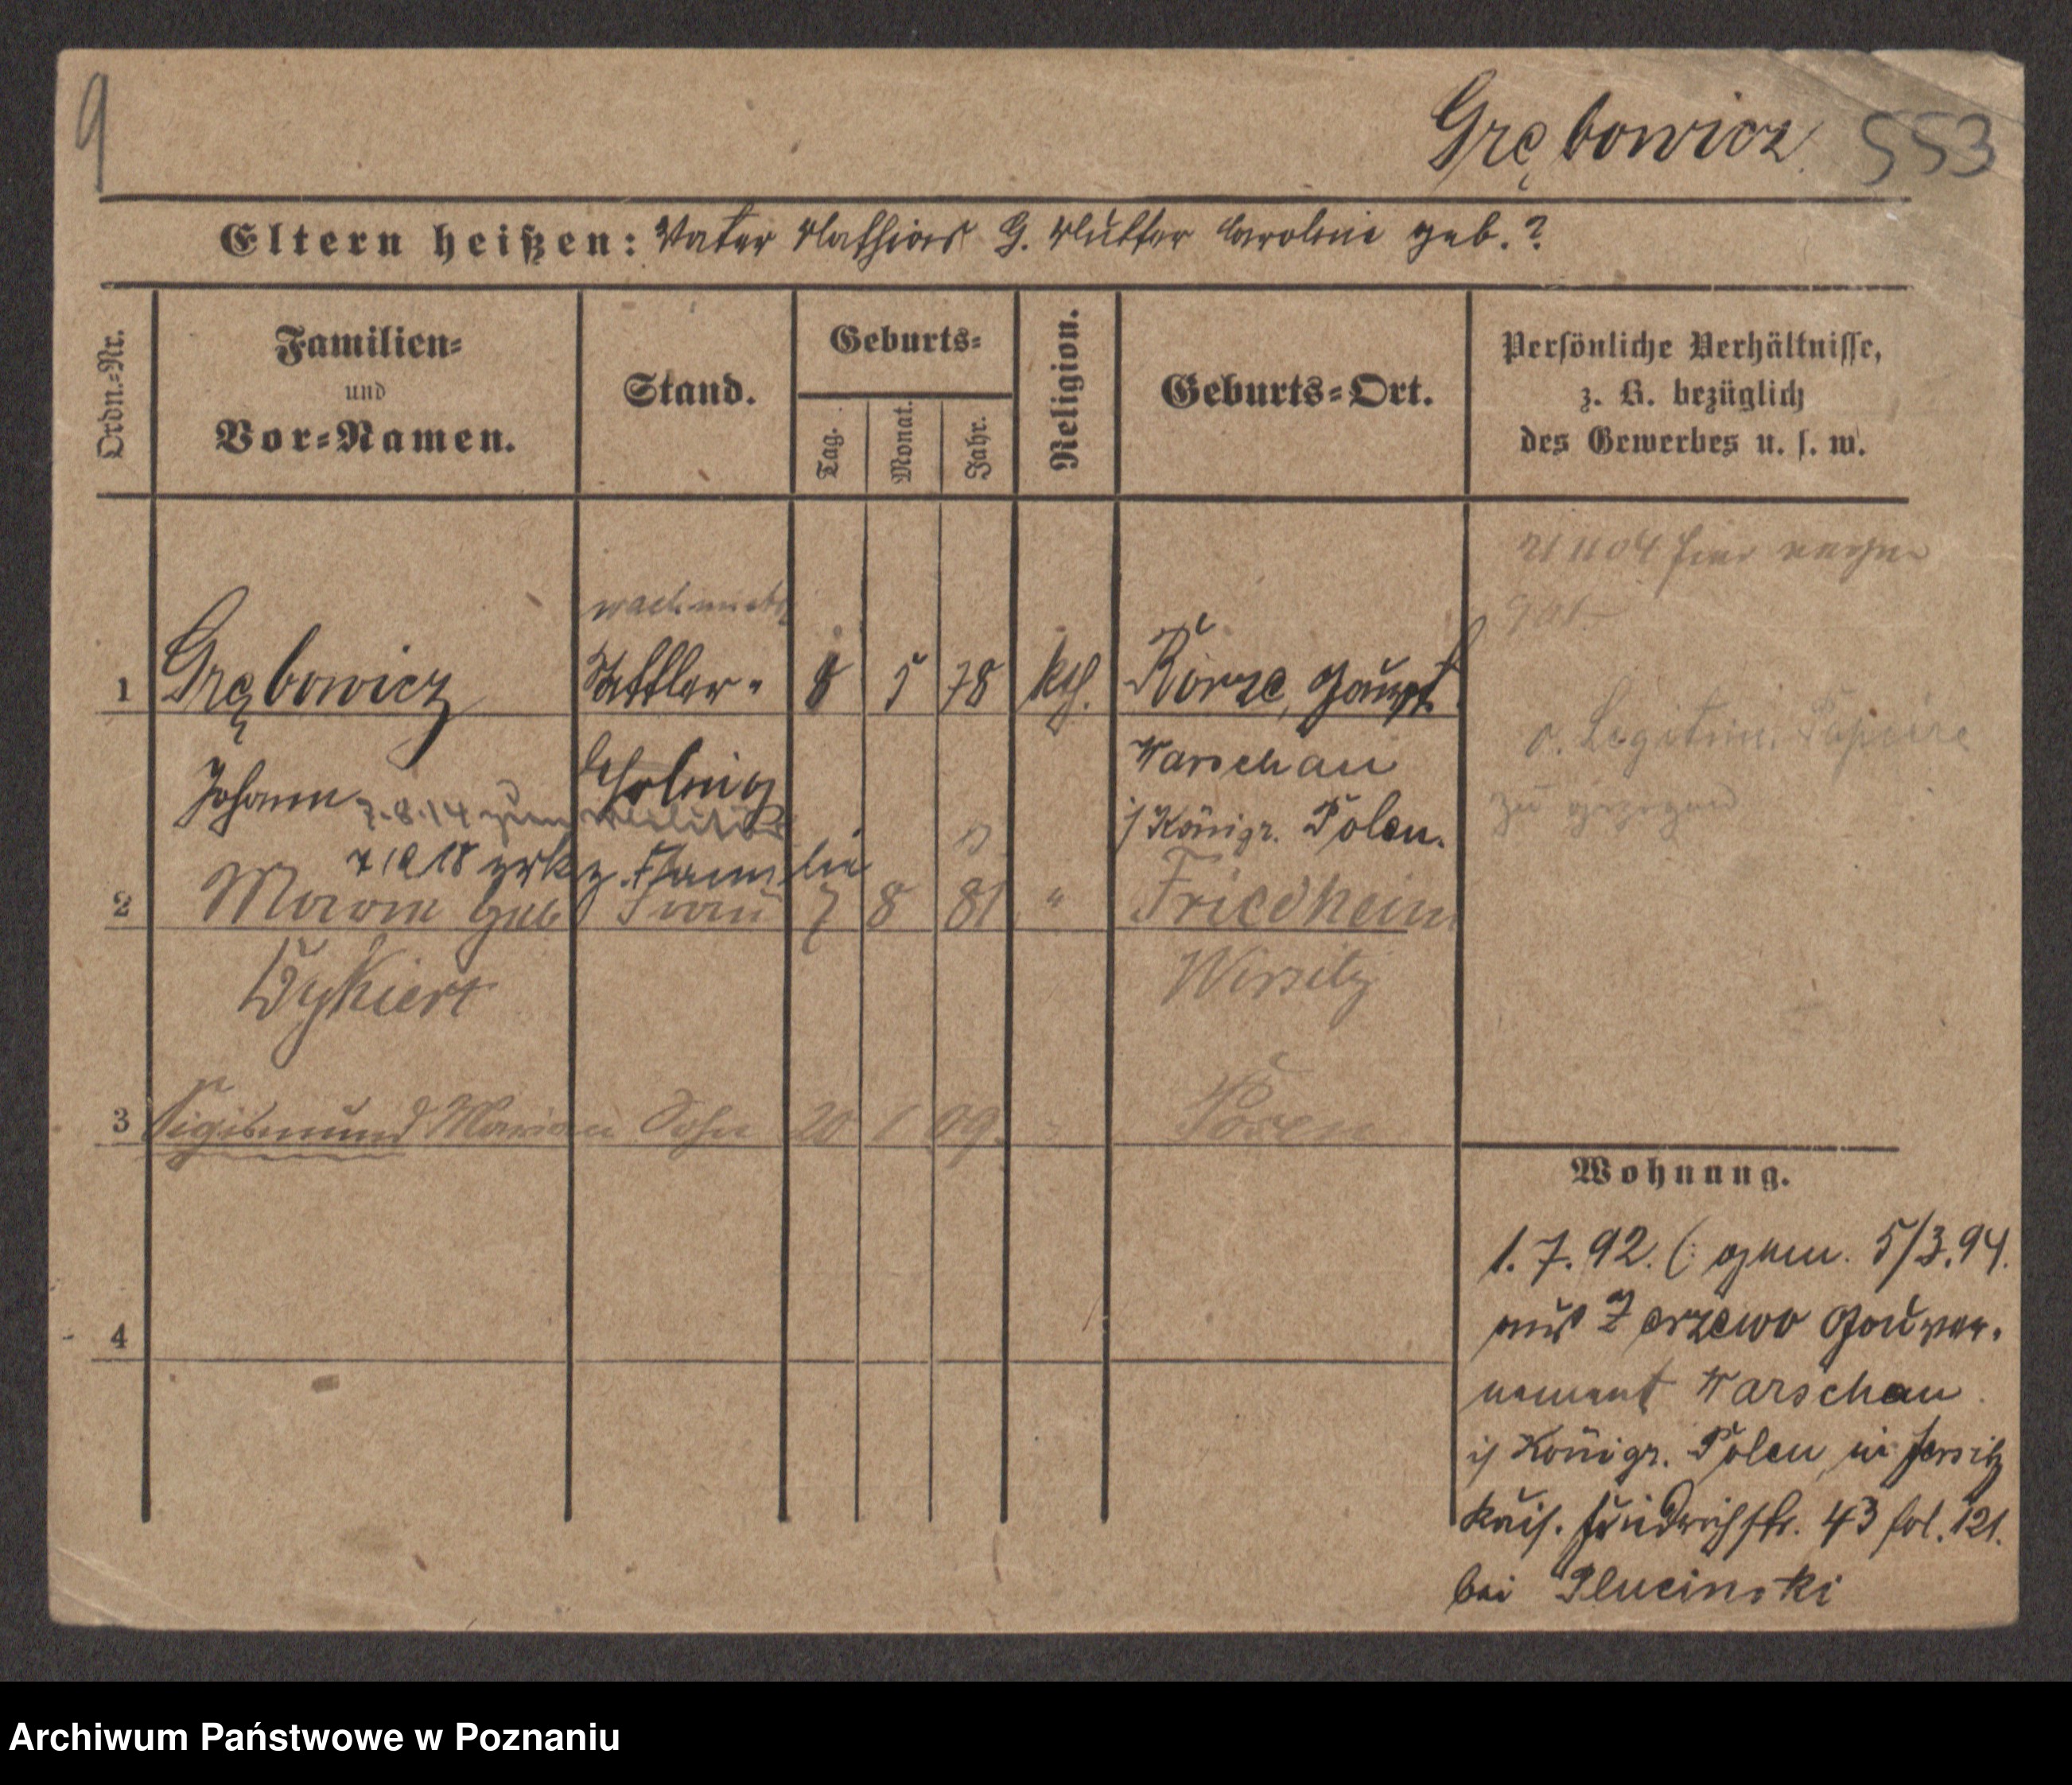 9
Grębowicz 553
Eltern heißen: Vater Mathias G. Mutter Caroline geb.?
Ordn.-Nr.
Familien-
und
Vor-Namen.
Stand.
Geburts-
Tag.
Monat.
Jahr.
Religion.
Geburts-Ort.
Persönliche Verhältnisse,
z. B. bezüglich
des Gewerbes u. s. w.
21 11 04 hier
1 Grębowicz Sattler- 8 5 78 kth. Gouv.
Johann Lehrling Warschau
o. Legitim. Papiere
7.8.14 zum Militär i/Königr. Polen.
zu gezogen
7 12 18 zrk z. Familie
2 geb Frau 7 8 81 " Friedheim
Dykiert Wirsitz
3 Sigismund Marian Sohn 20 1 09. Posen
Wohnung.
4
1.7.92. (: gem. 5/3.94.
aus Zerzewo Gouver-
nement Warschau
i/ Königr. Polen, in Jersitz
Kais. Friedrichstr. 43 fol. 121.
bei Plucinski
Archiwum Państwowe w Poznaniu